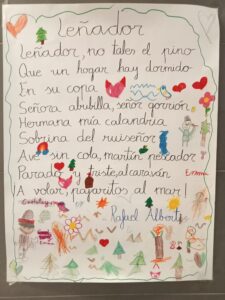 Leñador
Leñador, no tales el pino
Que un hogar hay dormido
En su copa
Señora abubilla, señor gorrión,
Hermana mía calandria
Sobrina del ruiseñor
Ave sin cola, martín pescador
Parado y triste, alcaraván
¡A volar, pajaritos al mar!
Rafael Alberti